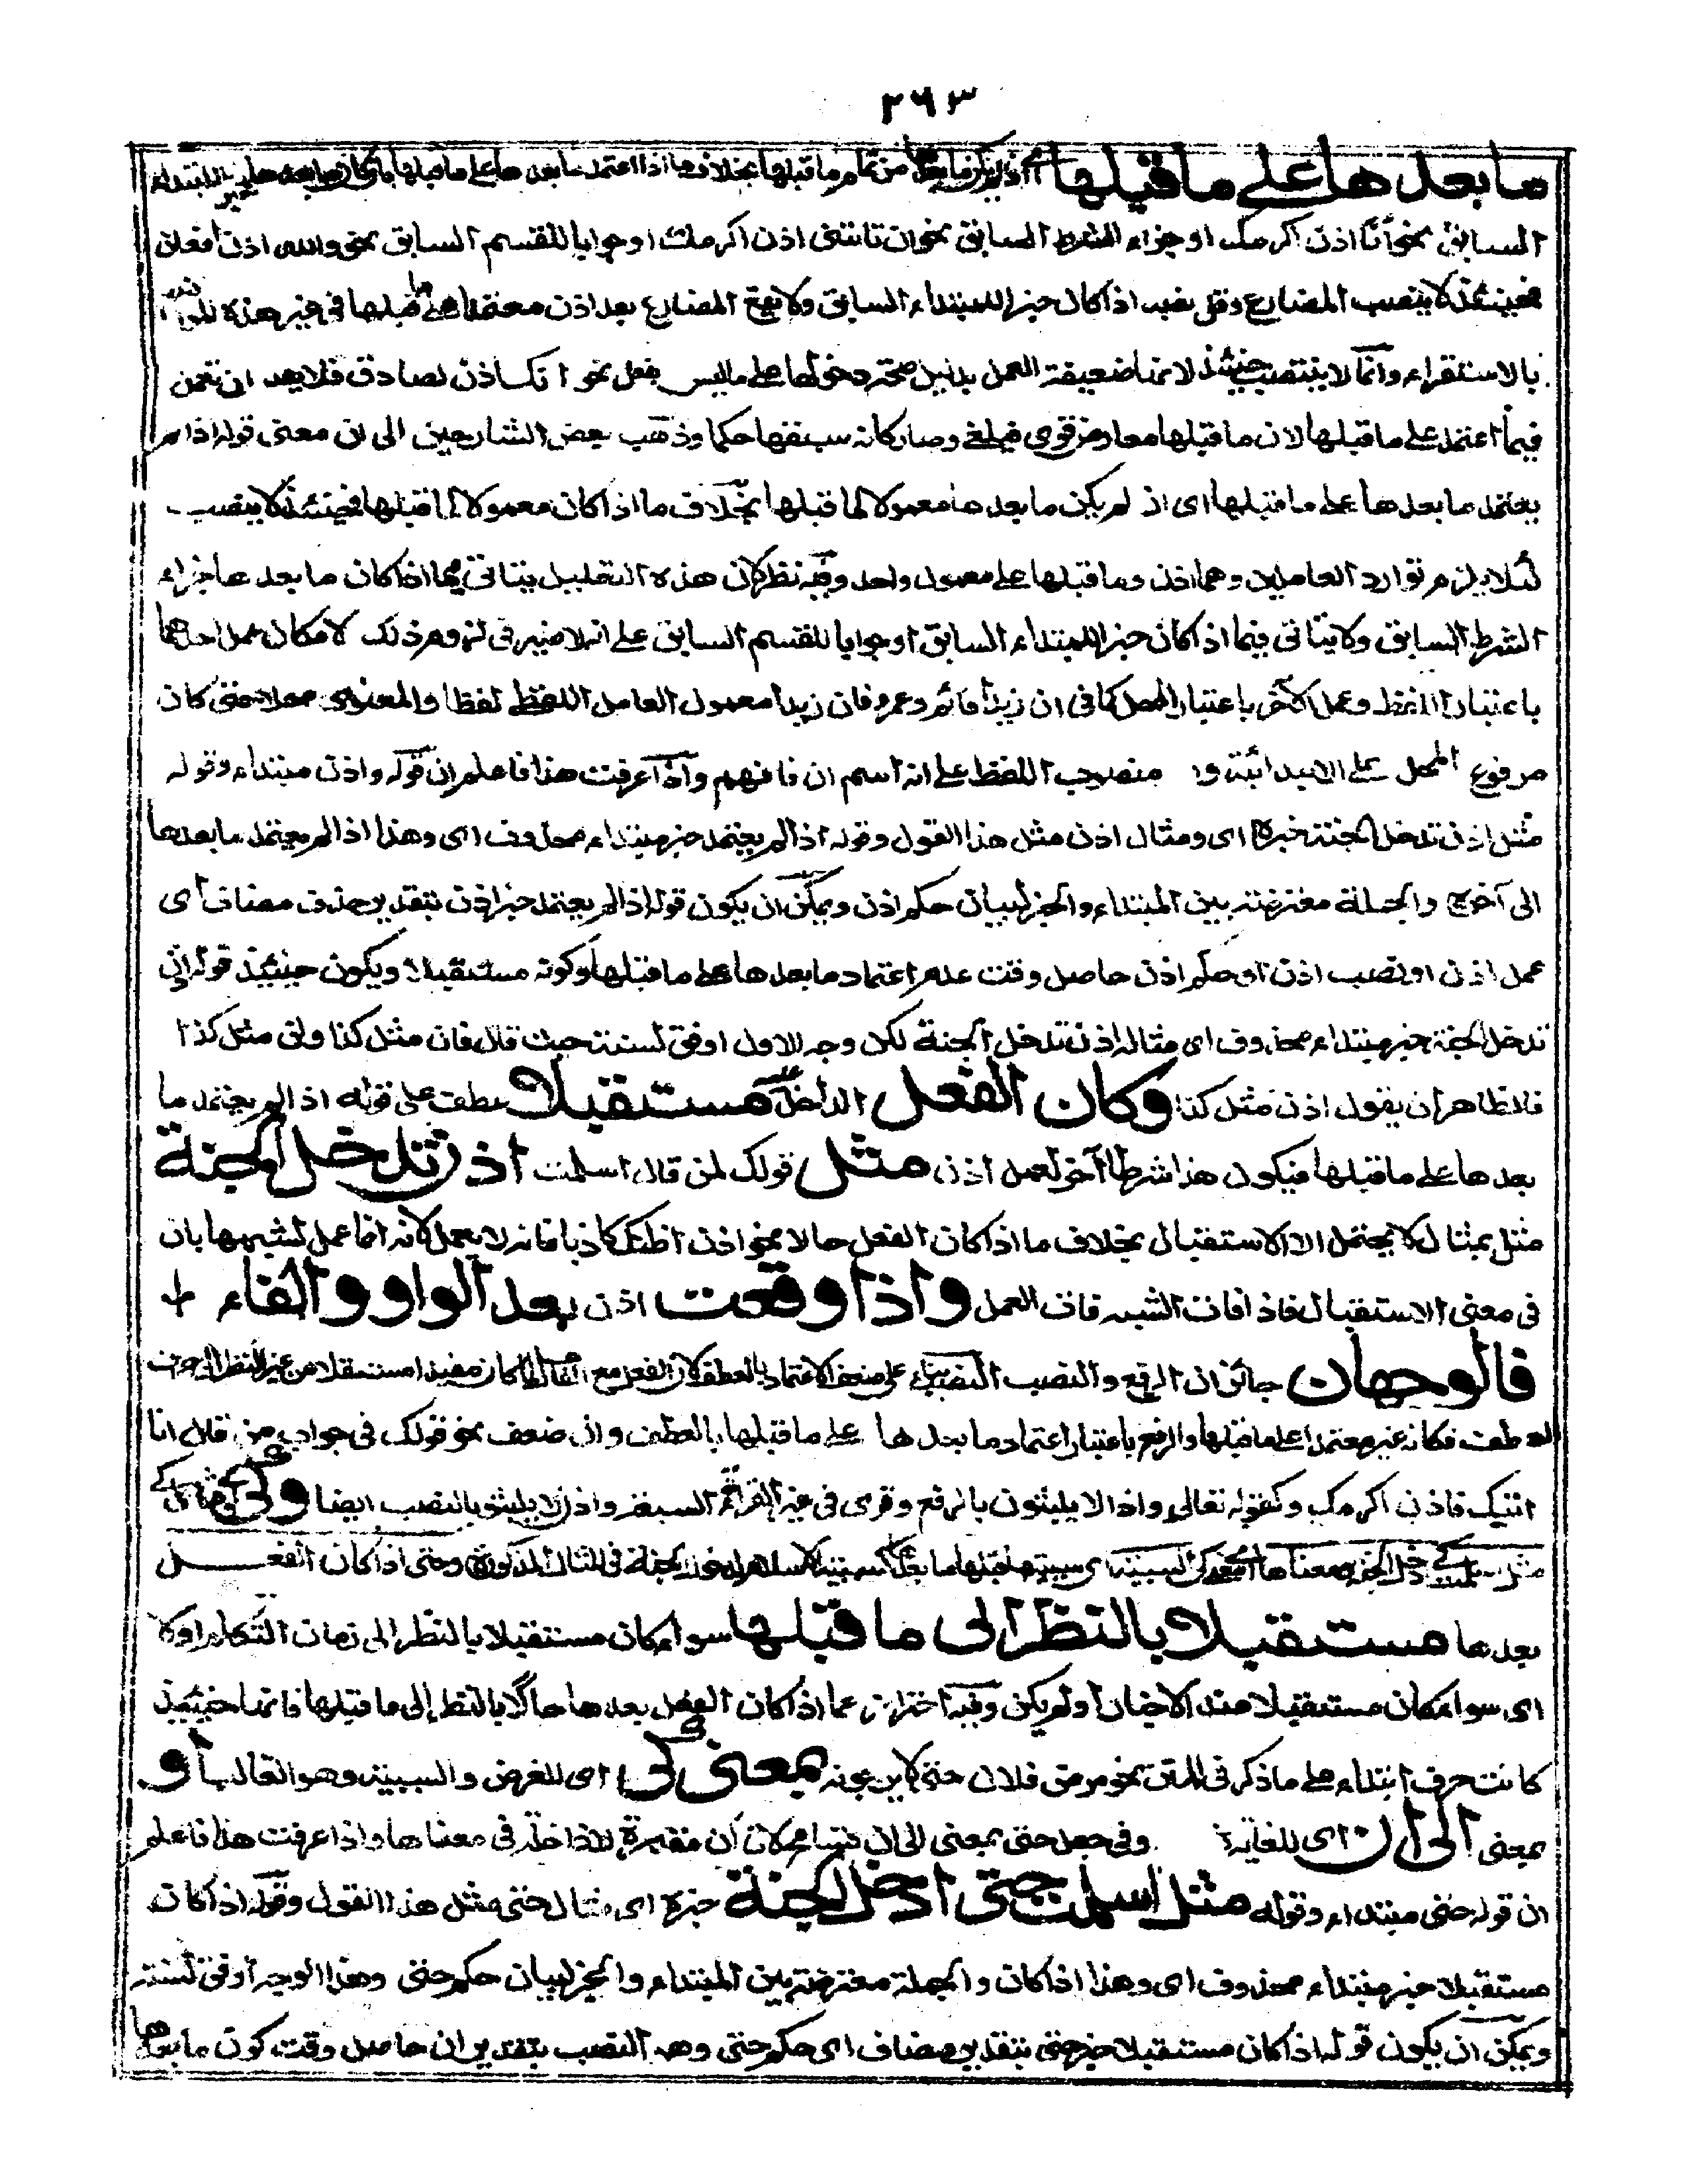 ٣٦٣
ما بعدها على ما قبلها اى اذا لم يكن ما بعدها من تمام ما قبلها بخلاف ما اذا اعتمد ما بعدها على ما قبلها بان كان ما بعدها خبر المبتداء
السابق نحو أنا اذن اكرمك او جزاء الشرط السابق نحو ان تاتنى اذن اكرمك او جوابا للقسم السابق نحو والله اذن افعلن
فحينئذ لا ينصب المضارع وقل نصبه اذا كان خبرا للمبتداء السابق ولا يقع المضارع بعد اذن معتمدا على ما قبلها فى غير هذه
بالاستقراء وانما لا ينتصب حينئذ لانها ضعيفة العمل بدليل صحة دخولها على ما ليس بفعل نحو انك اذن لصادق فلا بعد ان
فيما اعتمد على ما قبلها لان ما قبلها معاد من قوى فيلغى وصار كانه سبقها حكما وذهب بعض الشارحين الى ان معنى قوله اذا لم
يعتمد ما بعدها على ما قبلها اى اذ لم يكن ما بعدها معمولا لما قبلها بخلاف ما اذا كان معمولا لما قبلها فحينئذ لا ينصب
لئلا يلزم توارد العاملين وهما اذن وما قبلها على معمول واحد وفيه نظر لان هذه التعليل يتاتى فيما اذا كان ما بعدها جزاء
الشرط السابق ولا يتاتى فيما اذا كان خبرا للمبتداء السابق او جوابا للقسم السابق على انه لا ضير فى لزوم ذلك لامكان عمل احدهما
باعتبار اللفظ وعمل الآخر باعتبار المحل كما فى ان زيدا قائم وعمرو فان زيدا معمول العامل اللفظى لفظا والمعنوى محلا حتى كان
مرفوع المحل على الابتدائية و منصوب اللفظ على انه اسم ان فافهم واذا عرفت هذا فاعلم ان قوله واذن مبتداء وقوله
مثل اذن تدخل الجنة خبره اى ومثال اذن مثل هذا القول وقوله اذا لم يعتمد خبر مبتداء محذوف اى وهذا اذا لم يعتمد ما بعدها
الى آخره والجملة معترضة بين المبتداء والخبر لبيان حكم اذن ويمكن ان يكون قوله اذا لم يعتمد خبر اذن بتقدير حذف مضاف اى
عمل اذن او نصب اذن او حكم اذن حاصل وقت عدم اعتماد ما بعدها على ما قبلها وكونه مستقبلا ويكون حينئذ قوله اذن
تدخل الجنة خبر مبتداء محذوف اى مثاله اذن تدخل الجنة لكن وجه الاول اوفق لسننه حيث قال فان مثل كذا ولن مثل كذا
فالظاهر ان يقول اذن مثل كذا وكان الفعل الداخل عليه مستقبلا عطف على قوله اذا لم يعتمد ما
بعدها على ما قبلها فيكون هذا شرطا آخر لعمل اذن مثل قولك لمن قال اسلمت اذن تدخل الجنة
مثل بمثال لا يحتمل الا الاستقبال بخلاف ما اذا كان الفعل حالا نحو اذن اظنك كاذبا فانه لا يعمل لانه انما عمل لشبهها بان
فى معنى الاستقبال فاذا فات الشبه فات العمل واذا وقعت اذن بعد الواو والفاء
فالوجهان جائزان الرفع والنصب النصب بناء على ضعف الاعتماد بالعطف لان الفعل مع الفاعل لما كان مفيدا مستقلا من غير النظر الى حرف
العطف فكانه غير معتمد على ما قبلها والرفع باعتبار اعتماد ما بعدها على ما قبلها بالعطف وان ضعف نحو قولك فى جواب من قال انا
اتيك فاذن اكرمك وكقوله تعالى واذا لا يلبثون بالرفع وقرى فى غير القراءة السبعة واذن لا يلبثوا بالنصب ايضا وكى
مثل اسلمت كى ادخل الجنة ومعناها السببية اى سببية ما قبلها لما بعدها كسببية الاسلام لدخول الجنة فى المثال المذكور وحتى اذا كان الفعل
بعدها مستقبلا بالنظر الى ما قبلها سواء كان مستقبلا بالنظر الى زمان التكلم او لا
اى سواء كان مستقبلا عند الاخبار او لم يكن وفيه احتراز عما اذا كان الفعل بعدها حالا بالنظر الى ما قبلها فانها حينئذ
كانت حرف ابتداء على ما ذكر فى المتن نحو مرض فلان حتى لا يرجونه بمعنى كى اى للغرض والسببية وهو الغالب او
بمعنى الى ان اى للغاية وفى جعل حتى بمعنى الى ان تسامح لان أن مقدرة لا داخلة فى معناها واذا عرفت هذا فاعلم
ان قوله حتى مبتداء وقوله مثل اسلمت حتى ادخل الجنة خبره اى مثال حتى مثل هذا القول وقوله اذا كان
مستقبلا خبر مبتداء محذوف اى وهذا اذا كان والجملة معترضة بين المبتداء والخبر لبيان حكم حتى وهذا الوجه اوفق لسننه
ويمكن ان يكون قوله اذا كان مستقبلا خبر حتى بتقدير مضاف اى حكم حتى وهو النصب بتقدير ان حاصل وقت كون ما بعدها